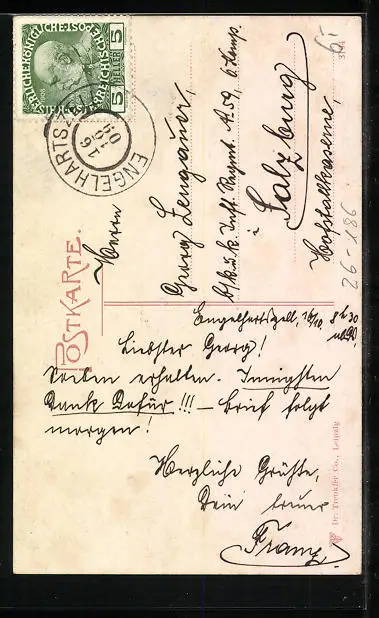 KAISERLICHE KÖNIGLICHE ÖSTERREICHISCHE POST
5 HELLER 5
ENGELHARTSZELL
POSTKARTE.
Herrn
Georg Zengauer,
b/k. u. k. Inft. Regmt. N. 59, 6 Comp.
i Salzburg
Hofstallkaserne,
26-186
Engelhartszell, 16/10, 8h 30
Liebster Georg!
Soeben erhalten. Innigsten
Dank dafür!!! – Brief folgt
morgen!
Herzliche Grüße,
Dein treuer
Franz.
Dr. Trenkler Co., Leipzig